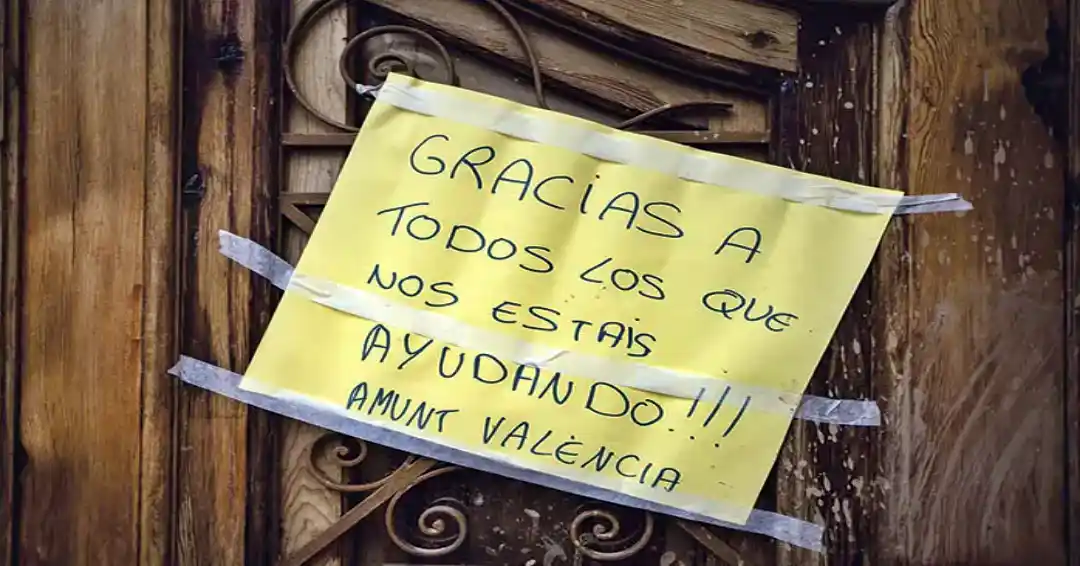 GRACIAS A
TODOS LOS QUE
NOS ESTAIS
AYUDANDO!!!
AMUNT VALÈNCIA